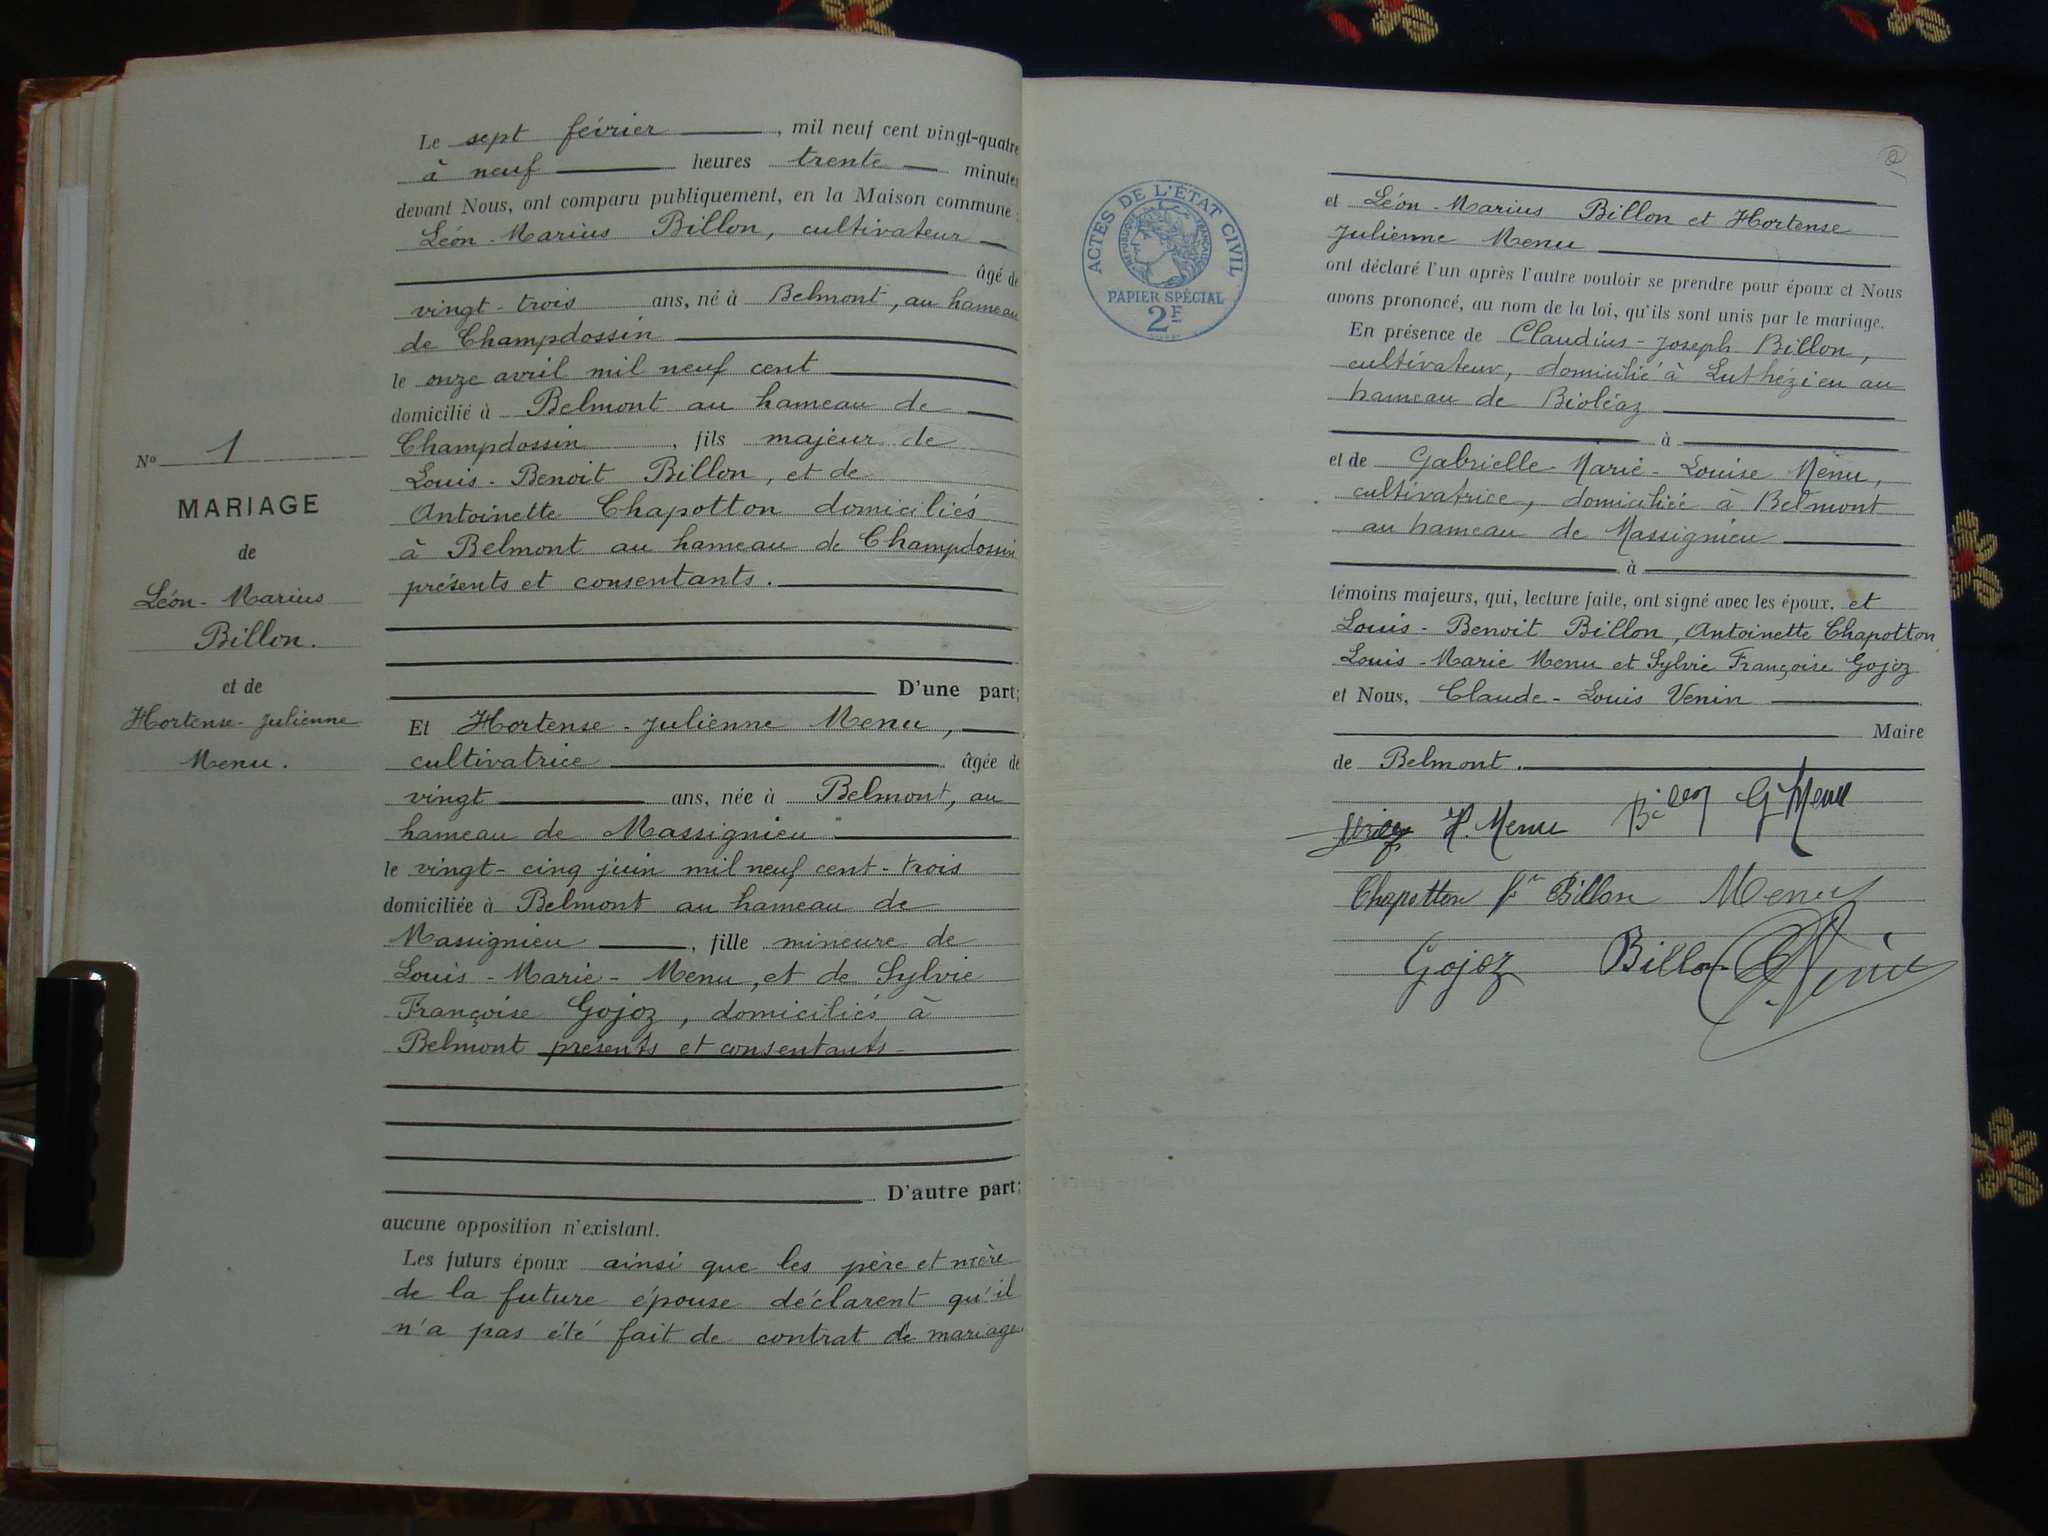 Le sept février, mil neuf cent vingt-quatre
à neuf heures trente minutes
devant Nous, ont comparu publiquement, en la Maison commune :
Léon-Marius Billon, cultivateur
âgé de
vingt-trois ans, né à Belmont, au hameau
de Champdossin
le onze avril mil neuf cent
domicilié à Belmont au hameau de
Champdossin, fils majeur de
Louis-Benoit Billon, et de
Antoinette Chapotton domiciliés
à Belmont au hameau de Champdossin
présents et consentants.
D'une part;
Et Hortense-Julienne Menu,
cultivatrice âgée de
vingt ans, née à Belmont, au
hameau de Massignieu
le vingt-cinq juin mil neuf cent-trois
domiciliée à Belmont au hameau de
Massignieu, fille mineure de
Louis-Marie-Menu, et de Sylvie
Françoise Gojoz, domiciliés à
Belmont présents et consentants
D'autre part;
aucune opposition n'existant.
Les futurs époux ainsi que les père et mère
de la future épouse déclarent qu'il
n'a pas été fait de contrat de mariage
N° 1
MARIAGE
de
Léon-Marius
Billon.
et de
Hortense-Julienne
Menu.
2
ACTES DE L'ÉTAT CIVIL
REPUBLIQUE FRANÇAISE
PAPIER SPÉCIAL
2F
et Léon-Marius Billon et Hortense
Julienne Menu
ont déclaré l'un après l'autre vouloir se prendre pour époux et Nous
avons prononcé, au nom de la loi, qu'ils sont unis par le mariage.
En présence de Claudius-Joseph Billon,
cultivateur, domicilié à Luthézieu au
hameau de Bioléaz
à
et de Gabrielle-Marie-Louise Menu,
cultivatrice, domiciliée à Belmont
au hameau de Massignieu
à
témoins majeurs, qui, lecture faite, ont signé avec les époux. et
Louis-Benoit Billon, Antoinette Chapotton,
Louis-Marie Menu et Sylvie Françoise Gojoz
et Nous, Claude-Louis Venin
Maire
de Belmont.
H. Menu Billon G Menu
Chapotton fe Billon Menu
Gojoz Billon C. Venin